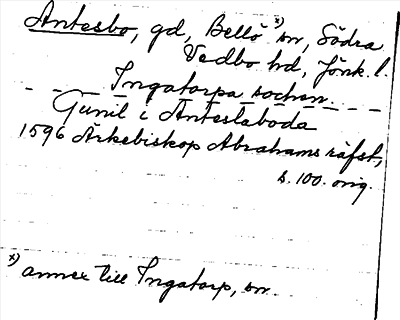 Antesbo, gd, Bellö x) sn, Södra
Vedbo hd, Jönk. l.
Ingatorpa socken.
Gunil i Anteslaboda
1596 Ärkebiskop Abrahams räfst,
s. 100. orig.
x) annex till Ingatorp, sn.